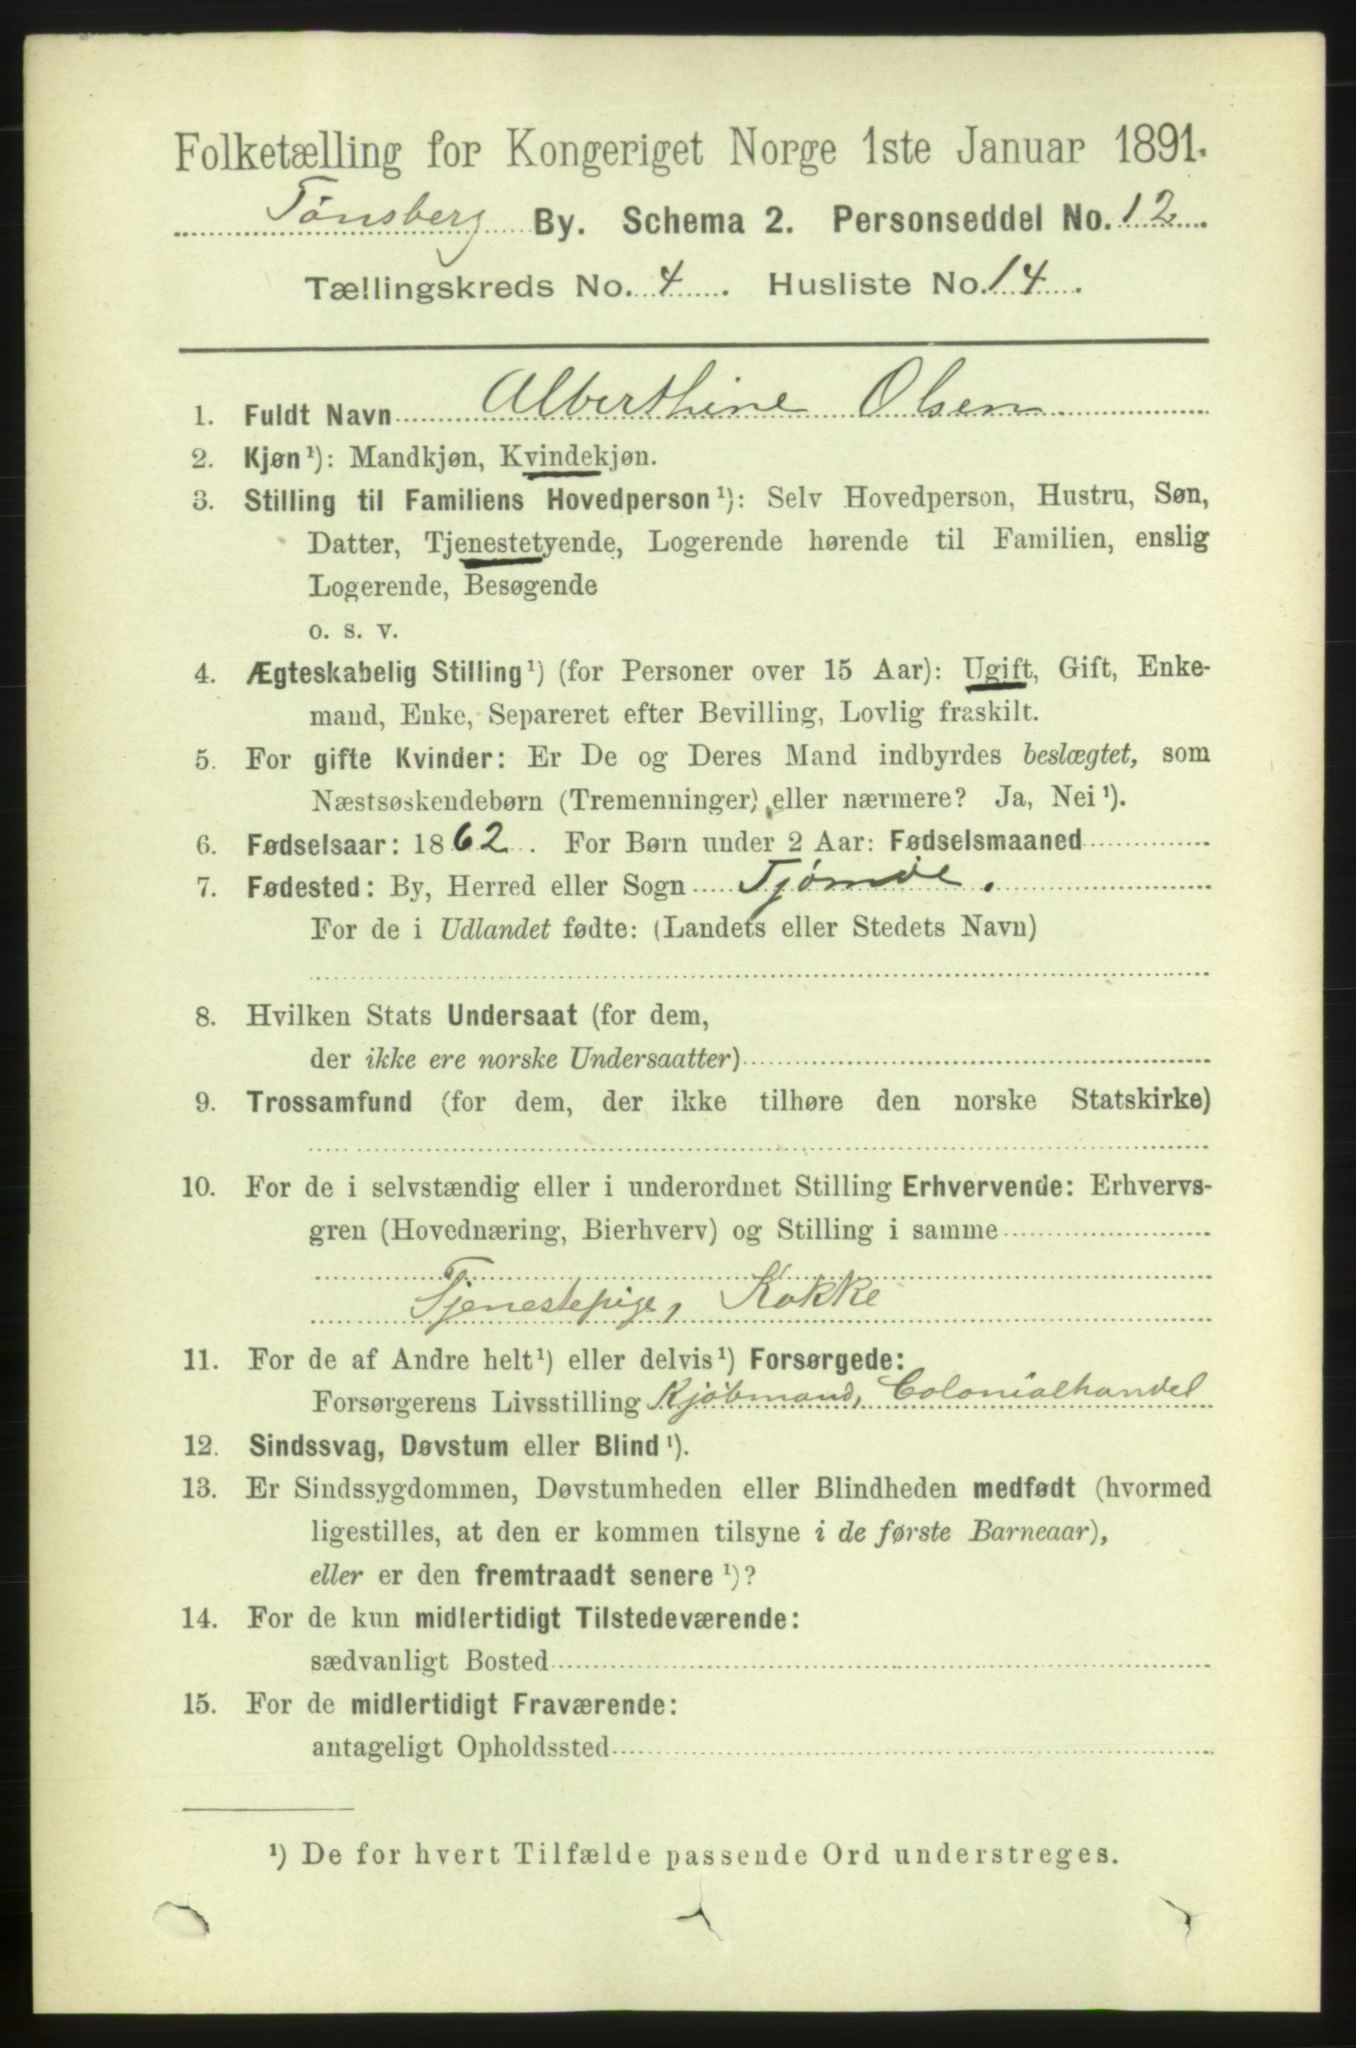 Folketælling for Kongeriget Norge 1ste Januar 1891.
Tønsberg By. Schema 2. Personseddel No. 12
Tællingskreds No. 4. Husliste No. 14.
1. Fuldt Navn Alberthine Olsen
2. Kjøn¹): Mandkjøn, Kvindekjøn.
3. Stilling til Familiens Hovedperson¹): Selv Hovedperson, Hustru, Søn,
Datter, Tjenestetyende, Logerende hørende til Familien, enslig
Logerende, Besøgende
o. s. v.
4. Ægteskabelig Stilling¹) (for Personer over 15 Aar): Ugift, Gift, Enke-
mand, Enke, Separeret efter Bevilling, Lovlig fraskilt.
5. For gifte Kvinder: Er De og Deres Mand indbyrdes beslægtet, som
Næstsøskendebørn (Tremenninger) eller nærmere? Ja, Nei¹).
6. Fødselsaar: 1862. For Børn under 2 Aar: Fødselsmaaned
7. Fødested: By, Herred eller Sogn Tjømøe.
For de i Udlandet fødte: (Landets eller Stedets Navn)
8. Hvilken Stats Undersaat (for dem,
der ikke ere norske Undersaatter)
9. Trossamfund (for dem, der ikke tilhøre den norske Statskirke)
10. For de i selvstændig eller i underordnet Stilling Erhvervende: Erhvervs-
gren (Hovednæring, Bierhverv) og Stilling i samme
Tjenestepige, Kokke
11. For de af Andre helt¹) eller delvis¹) Forsørgede:
Forsørgerens Livsstilling Kjøbmand, Colonialhandel
12. Sindssvag, Døvstum eller Blind¹).
13. Er Sindssygdommen, Døvstumheden eller Blindheden medfødt (hvormed
ligestilles, at den er kommen tilsyne i de første Barneaar),
eller er den fremtraadt senere¹)?
14. For de kun midlertidigt Tilstedeværende:
sædvanligt Bosted
15. For de midlertidigt Fraværende:
antageligt Opholdssted
¹) De for hvert Tilfælde passende Ord understreges.